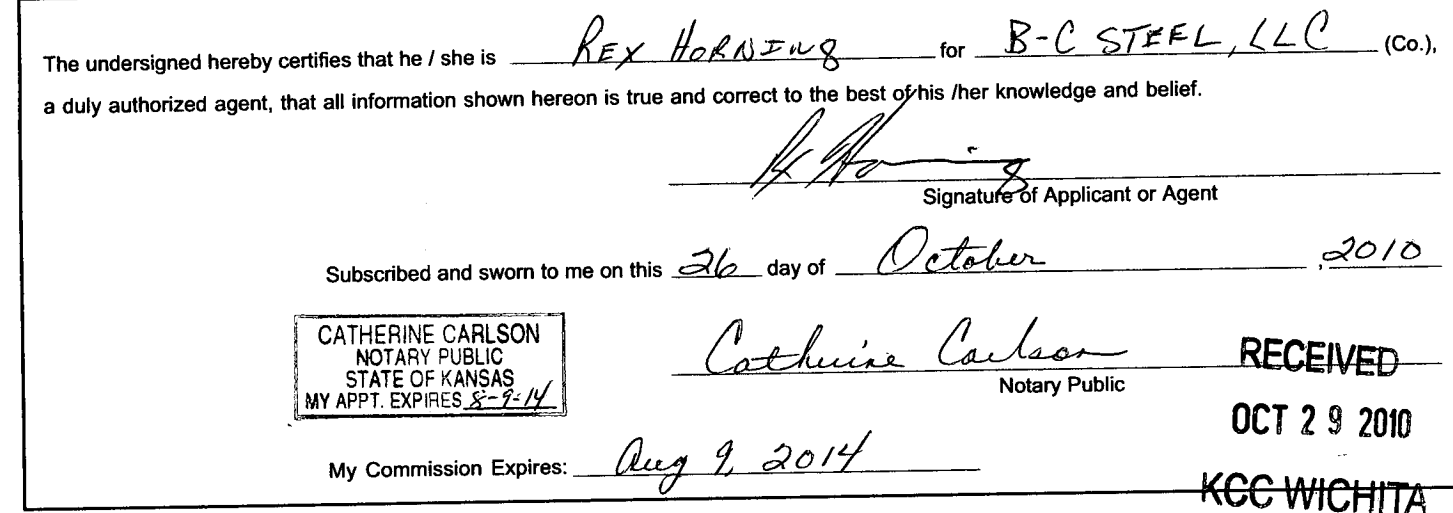 The undersigned hereby certifies that he / she is REX HORNING for B-C STEEL, LLC (Co.),
a duly authorized agent, that all information shown hereon is true and correct to the best of his /her knowledge and belief.
Rex Horning
Signature of Applicant or Agent
Subscribed and sworn to me on this 26 day of October , 2010
CATHERINE CARLSON
NOTARY PUBLIC
STATE OF KANSAS
MY APPT. EXPIRES 8-9-14
Catherine Carlson
Notary Public
RECEIVED
OCT 29 2010
My Commission Expires: Aug 9, 2014
KCC WICHITA